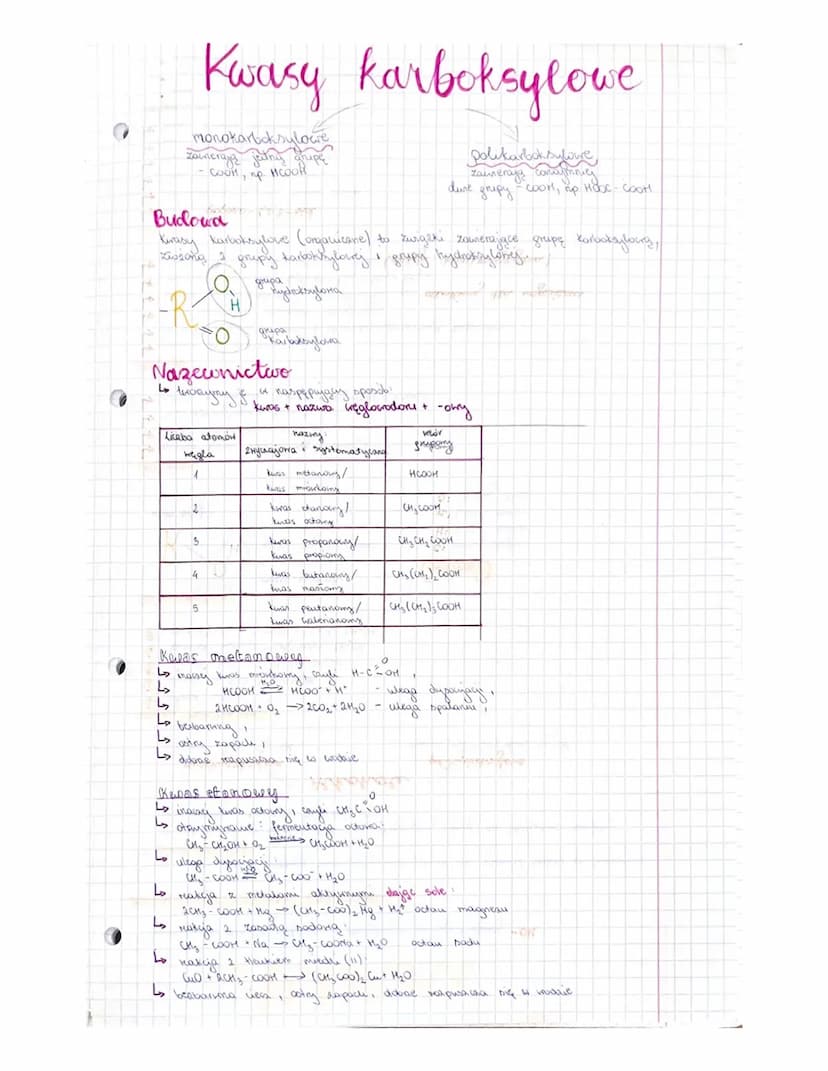 Kwasy karboksylowe
monokarboksylowe
zawierają jedną grupę
- COOH, np. HCOOH
polikarboksylowe,
zawierają conajmniej
dwie grupy - COOH, np. HOOC - COOH
Budowa
Kwasy karboksylowe (organiczne) to związki zawierające grupę karboksylową,
złożoną z grupy karboksylowej i grupy hydroksylowej.
-R O H O
grupa
hydroksylowa
grupa
karboksylowa
Nazewnictwo
↳ tworzymy je w następujący sposób:
kwas + nazwa węglowodoru + -owy
liczba atomów węgla
nazwy: zwyczajowa i systematyczna
wzór grupowy
1 kwas metanowy/ kwas mrówkowy HCOOH
2 kwas etanowy/ kwas octowy CH₃COOH
3 kwas propanowy/ kwas propiony CH₃CH₂COOH
4 kwas butanowy/ kwas masłowy CH₃(CH₂)₂COOH
5 kwas pentanowy/ kwas walerianowy CH₃(CH₂)₃COOH
Kwas metanowy
↳ inaczej kwas mrówkowy, czyli H-C=O OH,
↳ HCOOH ⇌ H₂O HCOO⁻ + H⁺ - ulega dysocjacji,
↳ 2HCOOH + O₂ → 2CO₂ + 2H₂O - ulega spalaniu,
↳ bezbarwny,
↳ ostry zapach,
↳ dobrze rozpuszcza się w wodzie
Kwas etanowy
↳ inaczej kwas octowy, czyli CH₃C=O OH
↳ otrzymywanie: fermentacja octowa:
CH₃-CH₂OH + O₂ → CH₃COOH + H₂O
↳ ulega dysocjacji:
CH₃-COOH ⇌ H₂O CH₃-COO⁻ + H₂O
↳ reakcja z metalami aktywnymi dając sole:
2CH₃-COOH + Mg → (CH₃-COO)₂Mg + H₂↑ octan magnezu
↳ reakcja z zasadą sodową:
CH₃-COOH + Na → CH₃-COONa + H₂O octan sodu
↳ reakcja z tlenkiem miedzi (II):
CuO + 2CH₃-COOH → (CH₃COO)₂Cu + H₂O
↳ bezbarwna ciecz, ostry zapach, dobrze rozpuszcza się w wodzie